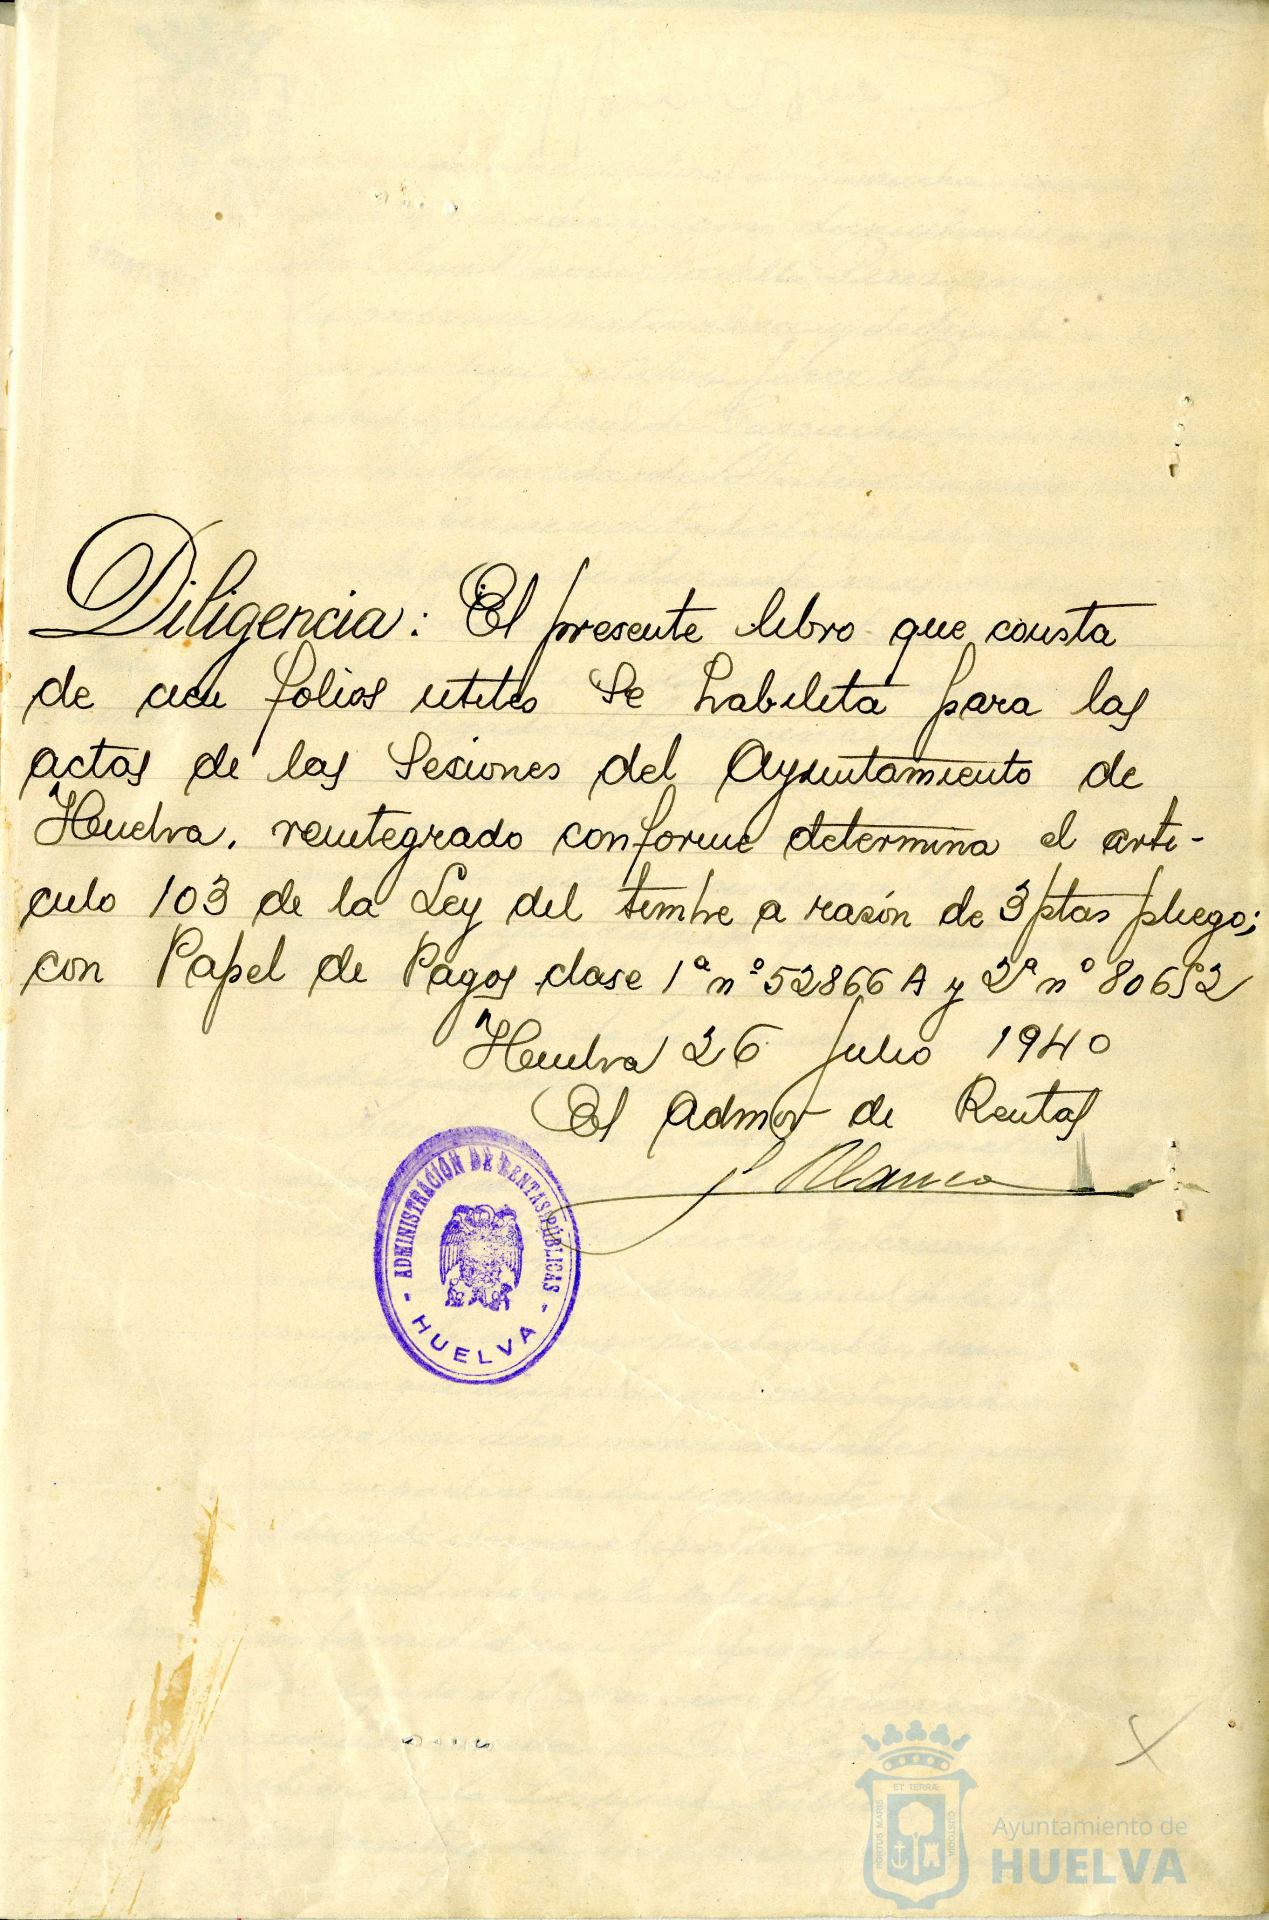 Diligencia: El presente libro que consta
de cien folios utiles se habilita para las
actas de las Sesiones del Ayuntamiento de
Huelva, reintegrado conforme determina el arti-
culo 103 de la Ley del timbre a razón de 3 ptas pliego;
con Papel de Pagos clase 1ª nº 52866 A y 2ª nº 80652
Huelva 26 Julio 1940
El Admor de Rentas
Blanco
- ADMINISTRACIÓN DE RENTAS PÚBLICAS -
HUELVA
PORTUS MARIS ET TERRÆ CUSTODIA
Ayuntamiento de
HUELVA